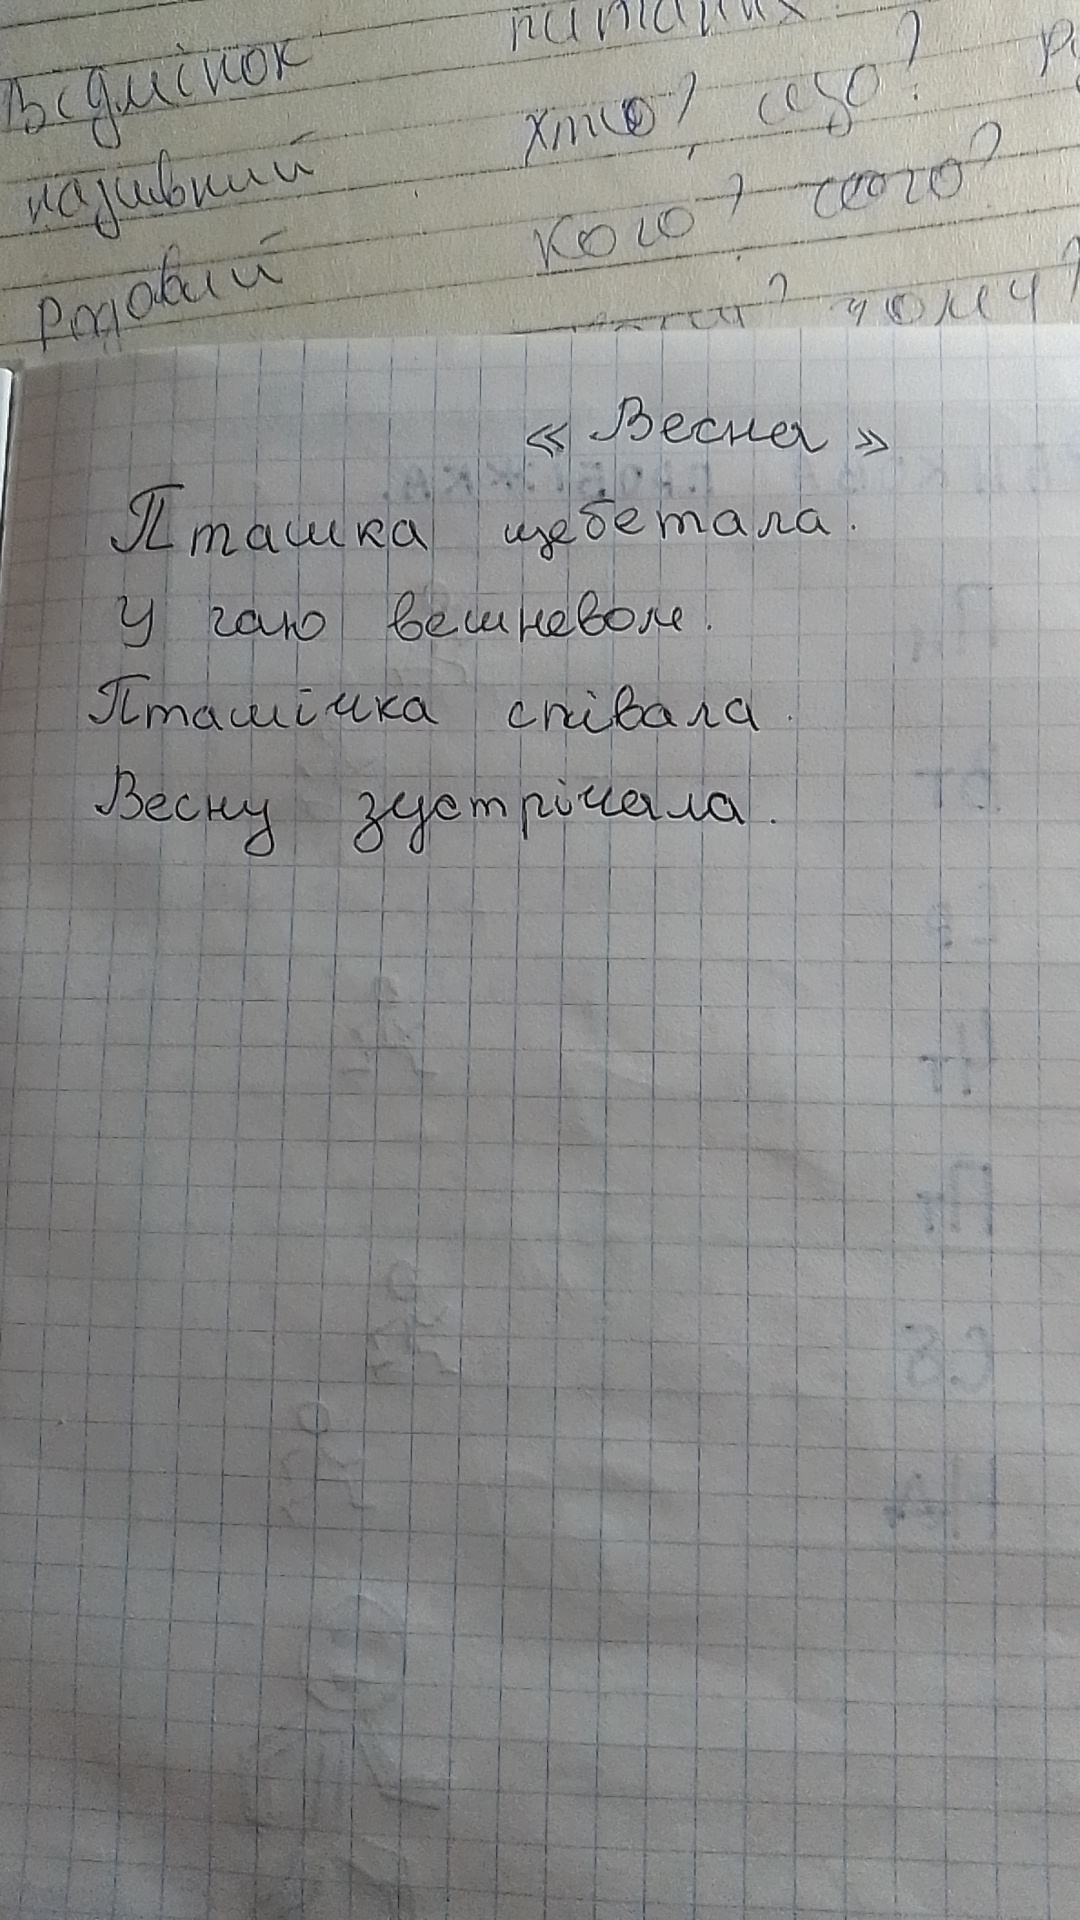 Відмінок питання
називний хто? що?
Родовий кого? чого?
чому?
« Весна »
Пташка щебетала.
У гаю вешневом.
Пташічка співала.
Весну зустрічала.